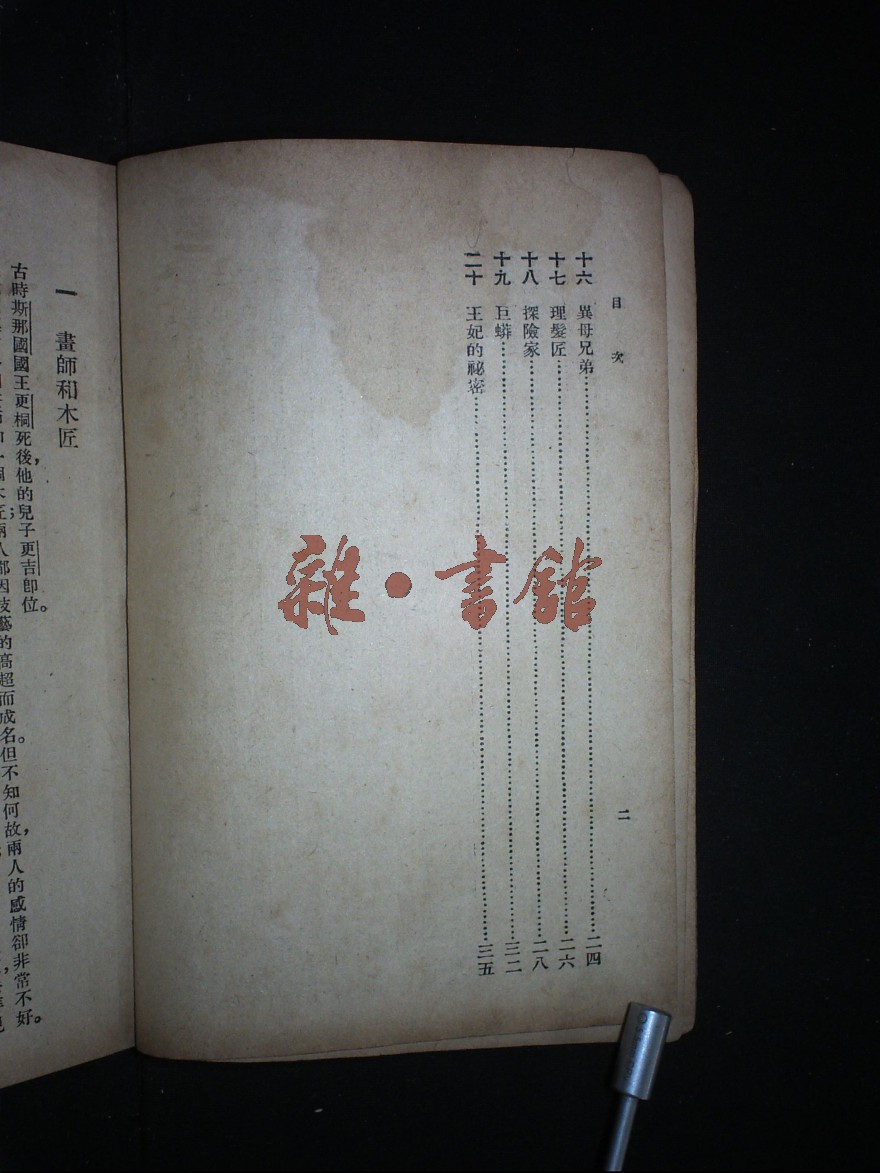 目次
十六 異母兄弟……二四
十七 理髮匠……二六
十八 探險家……二八
十九 巨蟒……三二
二十 王妃的祕密……三五
二
雜・書館
一 畫師和木匠
古時斯那國國王更桐死後，他的兒子更吉卽位。
兩人都因技藝的高超而成名。但不知何故，兩人的感情卻非常不好。